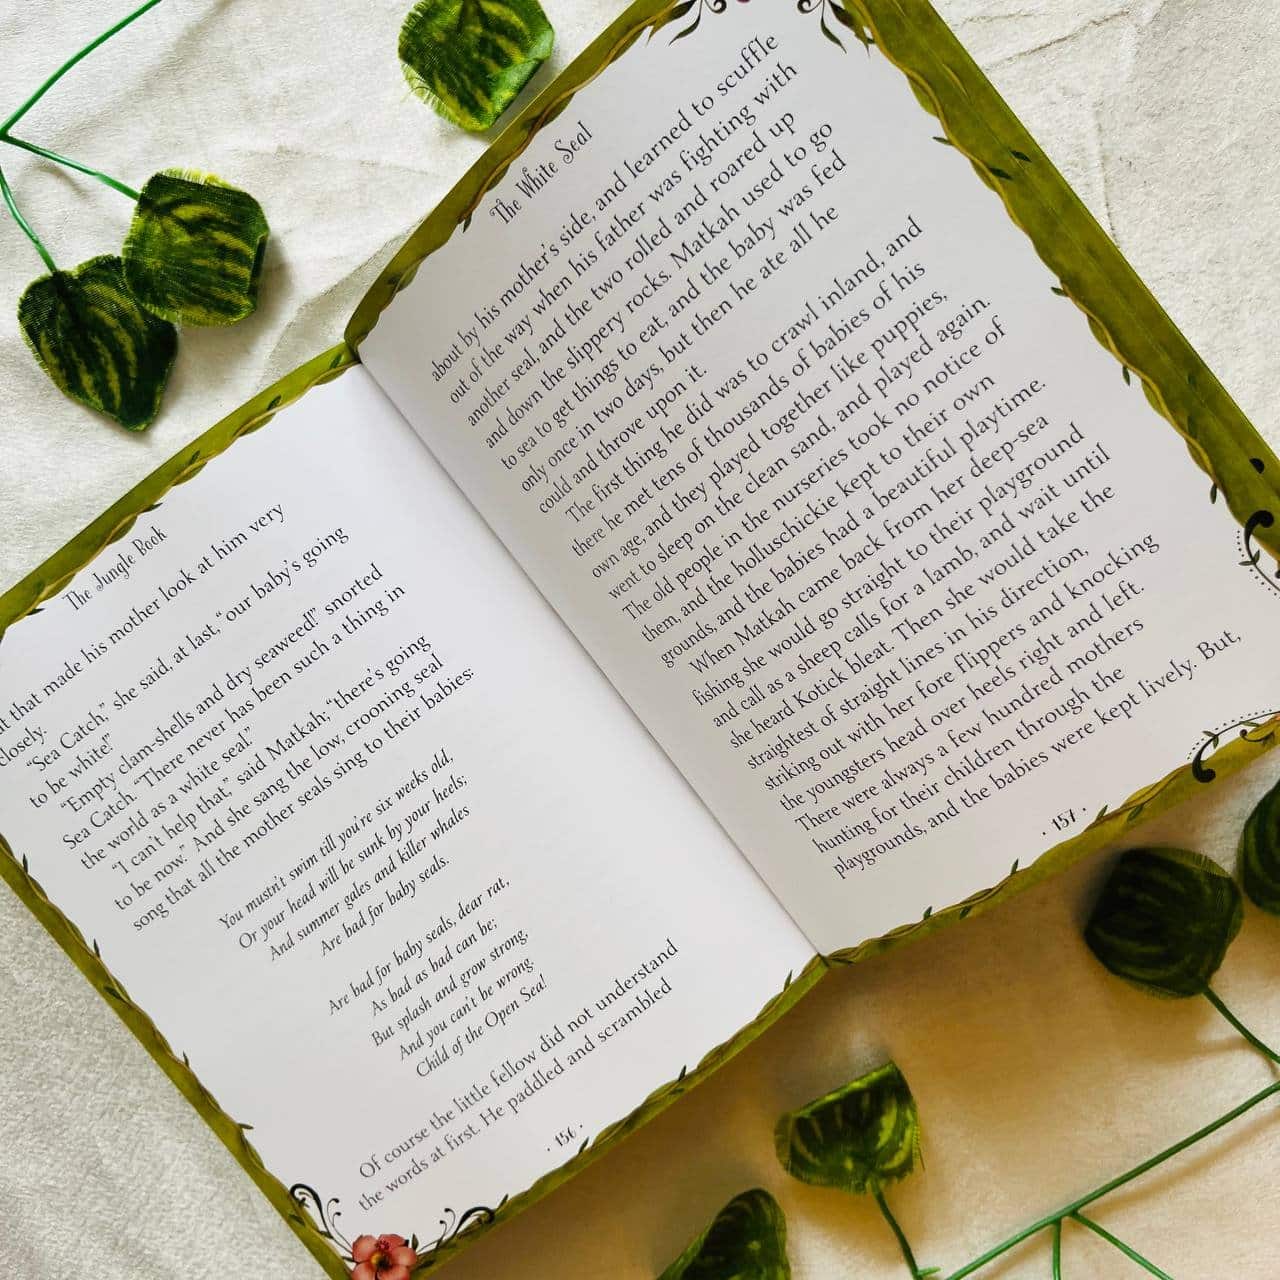 The Jungle Book
that made his mother look at him very
closely.
“Sea Catch,” she said, at last, “our baby’s going
to be white!”
“Empty clam-shells and dry seaweed!” snorted
Sea Catch. “There never has been such a thing in
the world as a white seal.”
“I can’t help that,” said Matkah; “there’s going
to be now.” And she sang the low, crooning seal
song that all the mother seals sing to their babies:
You mustn’t swim till you’re six weeks old,
Or your head will be sunk by your heels;
And summer gales and killer whales
Are bad for baby seals.
Are bad for baby seals, dear rat,
As bad as bad can be;
But splash and grow strong,
And you can’t be wrong.
Child of the Open Sea!
Of course the little fellow did not understand
the words at first. He paddled and scrambled
· 156 ·
The White Seal
about by his mother’s side, and learned to scuffle
out of the way when his father was fighting with
another seal, and the two rolled and roared up
and down the slippery rocks. Matkah used to go
to sea to get things to eat, and the baby was fed
only once in two days, but then he ate all he
could and throve upon it.
The first thing he did was to crawl inland, and
there he met tens of thousands of babies of his
own age, and they played together like puppies,
went to sleep on the clean sand, and played again.
The old people in the nurseries took no notice of
them, and the holluschickie kept to their own
grounds, and the babies had a beautiful playtime.
When Matkah came back from her deep-sea
fishing she would go straight to their playground
and call as a sheep calls for a lamb, and wait until
she heard Kotick bleat. Then she would take the
straightest of straight lines in his direction,
striking out with her fore flippers and knocking
the youngsters head over heels right and left.
There were always a few hundred mothers
hunting for their children through the
playgrounds, and the babies were kept lively. But,
· 157 ·